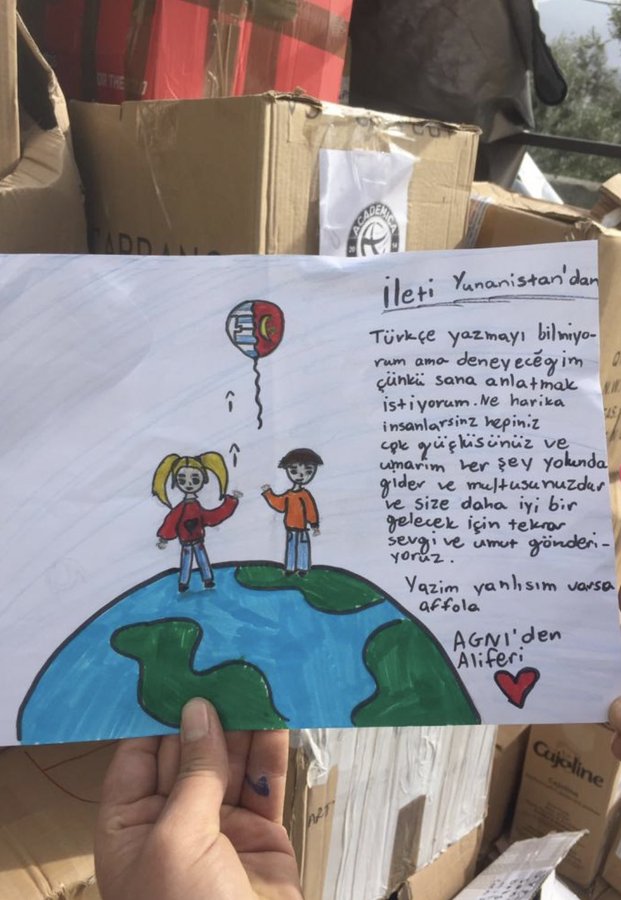 FOR THE
ACADEMICA
İleti Yunanistan'dan
Türkçe yazmayı bilmiyo-
rum ama deneyeceğim
çünkü sana anlatmak
istiyorum. Ne harika
insanlarsınz hepiniz
çok güçküsünüz ve
umarim her şey yolunda
gider ve multusunuzdur
ve size daha iyi bir
gelecek için tekrar
sevgi ve umut gönderi-
yoruz.
Yazim yanlısım varsa
affola
AGNI'den
Aliferi
Cajoline
Cajoline